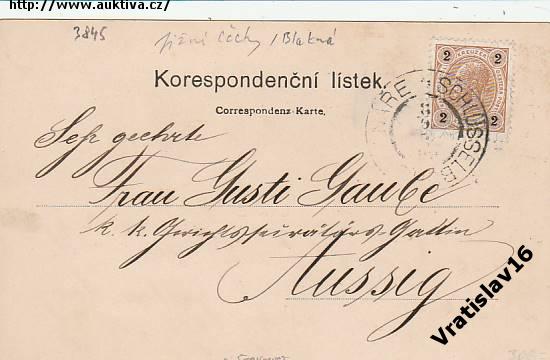 http://www.auktiva.cz/
3845 jižní Čechy / Blatná
Korespondenční lístek.
Correspondenz-Karte.
2 KREUZER 2
2 2
SCHLÜSSELB
Sehr geehrte
Frau Gusti Gaube
k. k. Gerichtssecretärs Gattin
Aussig
Vratislav16